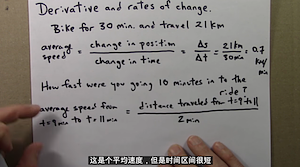 Derivative and rates of change.
Bike for 30 min. and travel 21 km
average speed = change in position / change in time = Δs / Δt = 21km / 30min = 0.7 km/min
How fast were you going 10 minutes in to the ride?
average speed from t=9min to t=11min = distance traveled fr t=9 to 11 / 2 min
这是个平均速度，但是时间区间很短